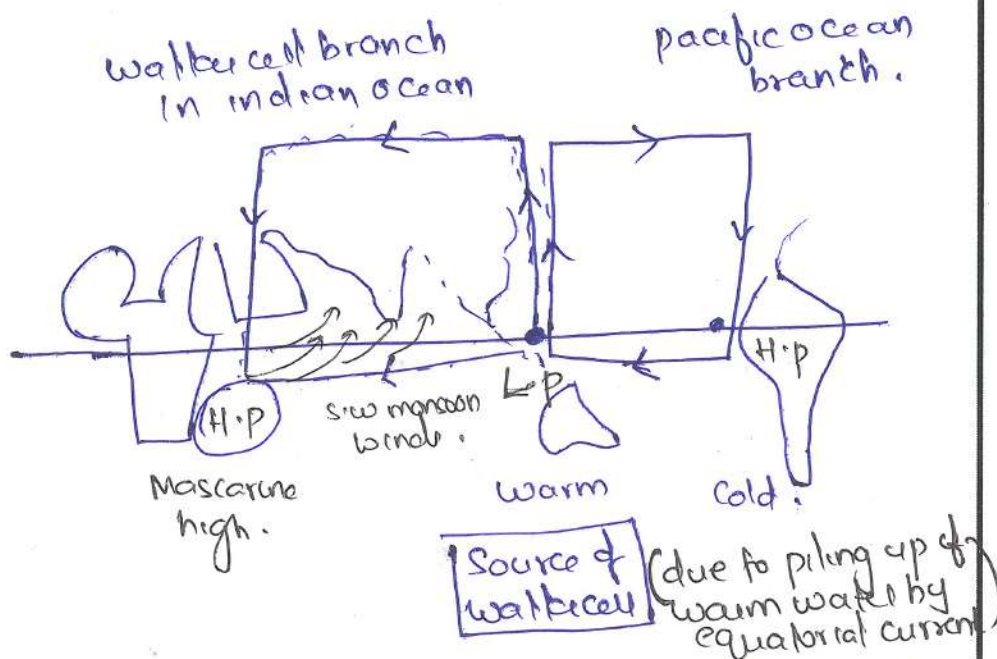 walker cell branch
in indian ocean
pacific ocean
branch.
H.P
H.P
L P
s.w monsoon
winds.
Mascarine
high.
warm
cold.
Source of
walkercell
(due to piling up of
warm water by
equatorial current)